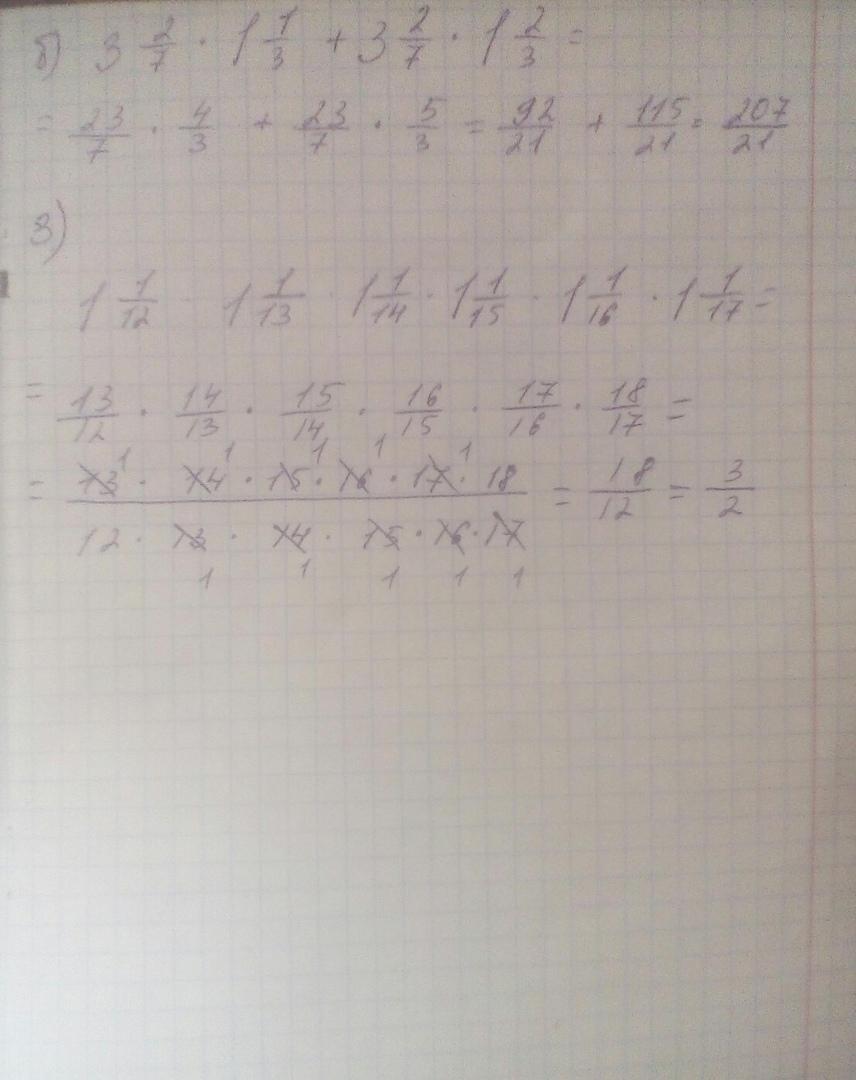 б) 3 2/7 · 1 1/3 + 3 2/7 · 1 2/3 =
= 23/7 · 4/3 + 23/7 · 5/3 = 92/21 + 115/21 = 207/21
3)
1 1/12 · 1 1/13 · 1 1/14 · 1 1/15 · 1 1/16 · 1 1/17 =
= 13/12 · 14/13 · 15/14 · 16/15 · 17/16 · 18/17 =
1 1 1 1 1
= 13 · 14 · 15 · 16 · 17 · 18 / 12 · 13 · 14 · 15 · 16 · 17 = 18/12 = 3/2
1 1 1 1 1